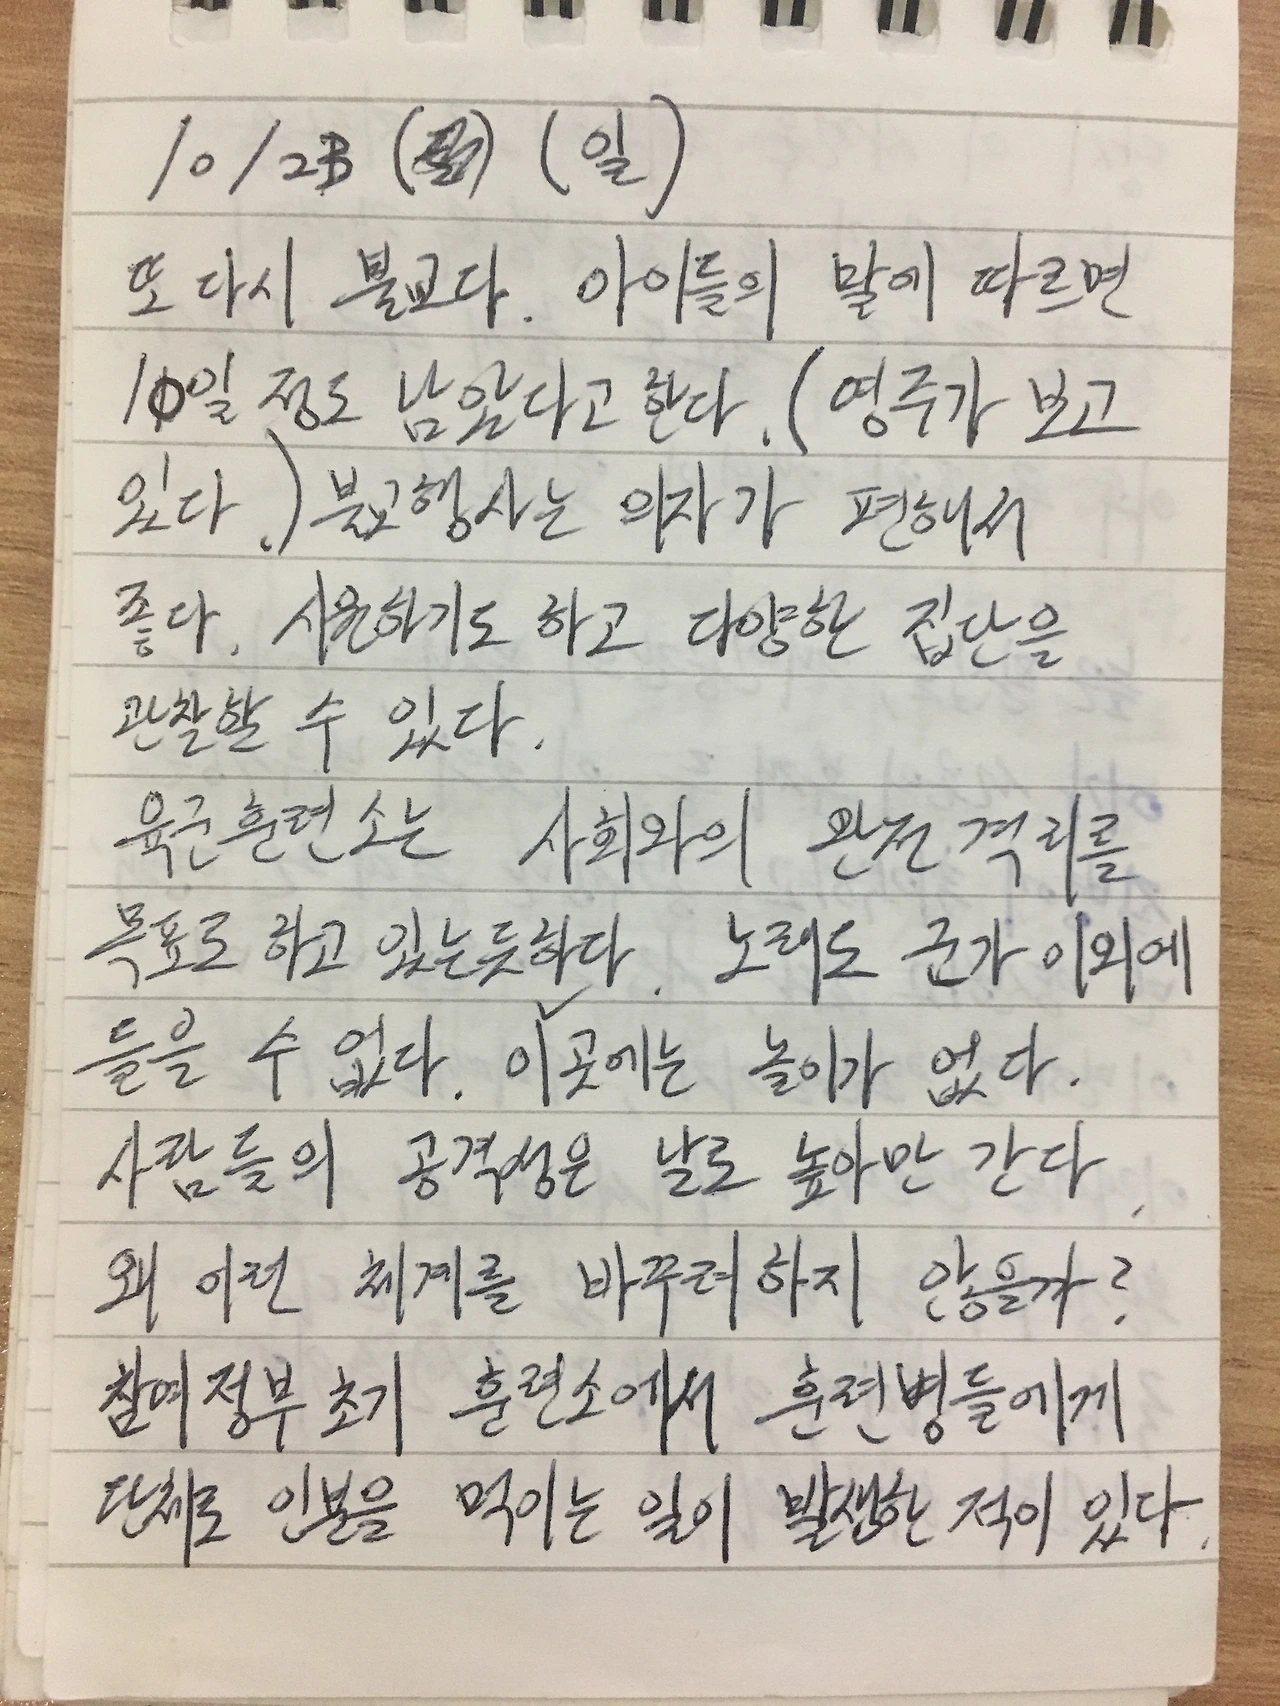 10/23 (일)
또 다시 불교다. 아이들의 말에 따르면
10일 정도 남았다고 한다. (영주가 보고
있다.) 불교행사는 의자가 편해서
좋다. 시원하기도 하고 다양한 집단을
관찰할 수 있다.
육군훈련소는 사회와의 완전 격리를
목표로 하고 있는듯하다. 노래도 군가 이외에
들을 수 없다. 이곳에는 놀이가 없다.
사람들의 공격성은 날로 높아만 간다.
왜 이런 체계를 바꾸려하지 않을까?
참여정부 초기 훈련소에서 훈련병들에게
단체로 인분을 먹이는 일이 발생한 적이 있다.